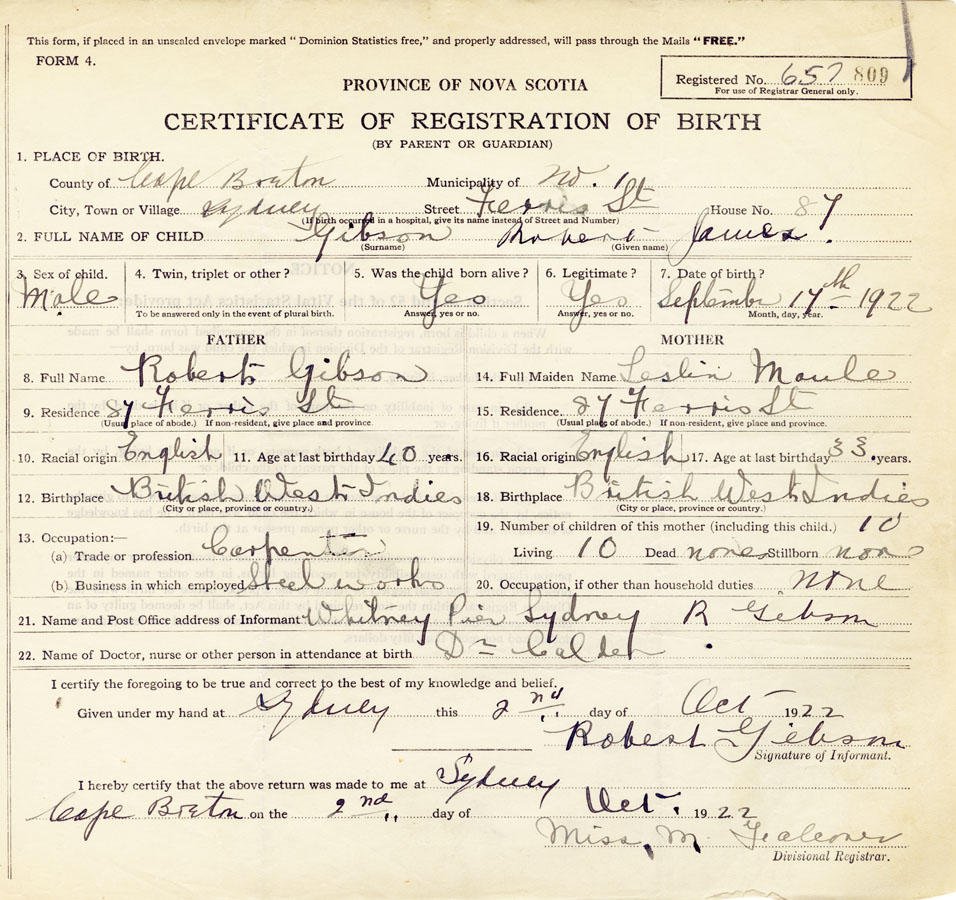 This form, if placed in an unsealed envelope marked "Dominion Statistics free," and properly addressed, will pass through the Mails "FREE."
FORM 4.
Registered No. 657 809
For use of Registrar General only.
PROVINCE OF NOVA SCOTIA
CERTIFICATE OF REGISTRATION OF BIRTH
(BY PARENT OR GUARDIAN)
1. PLACE OF BIRTH.
County of Cape Breton Municipality of No. 1
City, Town or Village Sydney Street Ferris St House No. 87
(If birth occurred in a hospital, give its name instead of Street and Number)
2. FULL NAME OF CHILD Gibson Robert James
(Surname) (Given name)
3. Sex of child. 4. Twin, triplet or other? 5. Was the child born alive? 6. Legitimate? 7. Date of birth?
Male Yes Yes September 17th 1922
To be answered only in the event of plural birth. Answer, yes or no. Answer, yes or no. Month, day, year.
FATHER MOTHER
8. Full Name Robert Gibson 14. Full Maiden Name Leslin Moule
9. Residence 87 Ferris St 15. Residence. 87 Ferris St
(Usual place of abode.) If non-resident, give place and province. (Usual place of abode.) If non-resident, give place and province.
10. Racial origin English 11. Age at last birthday 40 years. 16. Racial origin English 17. Age at last birthday 33 years.
12. Birthplace British West Indies 18. Birthplace British West Indies
(City or place, province or country.) (City or place, province or country.)
13. Occupation:— 19. Number of children of this mother (including this child.) 10
(a) Trade or profession Carpenter Living 10 Dead none Stillborn none
(b) Business in which employed Steel works 20. Occupation, if other than household duties none
21. Name and Post Office address of Informant Whitney Pier Sydney R Gibson
22. Name of Doctor, nurse or other person in attendance at birth Dr Calder
I certify the foregoing to be true and correct to the best of my knowledge and belief.
Given under my hand at Sydney this 2nd day of Oct 1922
Robert Gibson
Signature of Informant.
I hereby certify that the above return was made to me at Sydney
Cape Breton on the 2nd day of Oct. 1922
Miss. M. Falconer
Divisional Registrar.